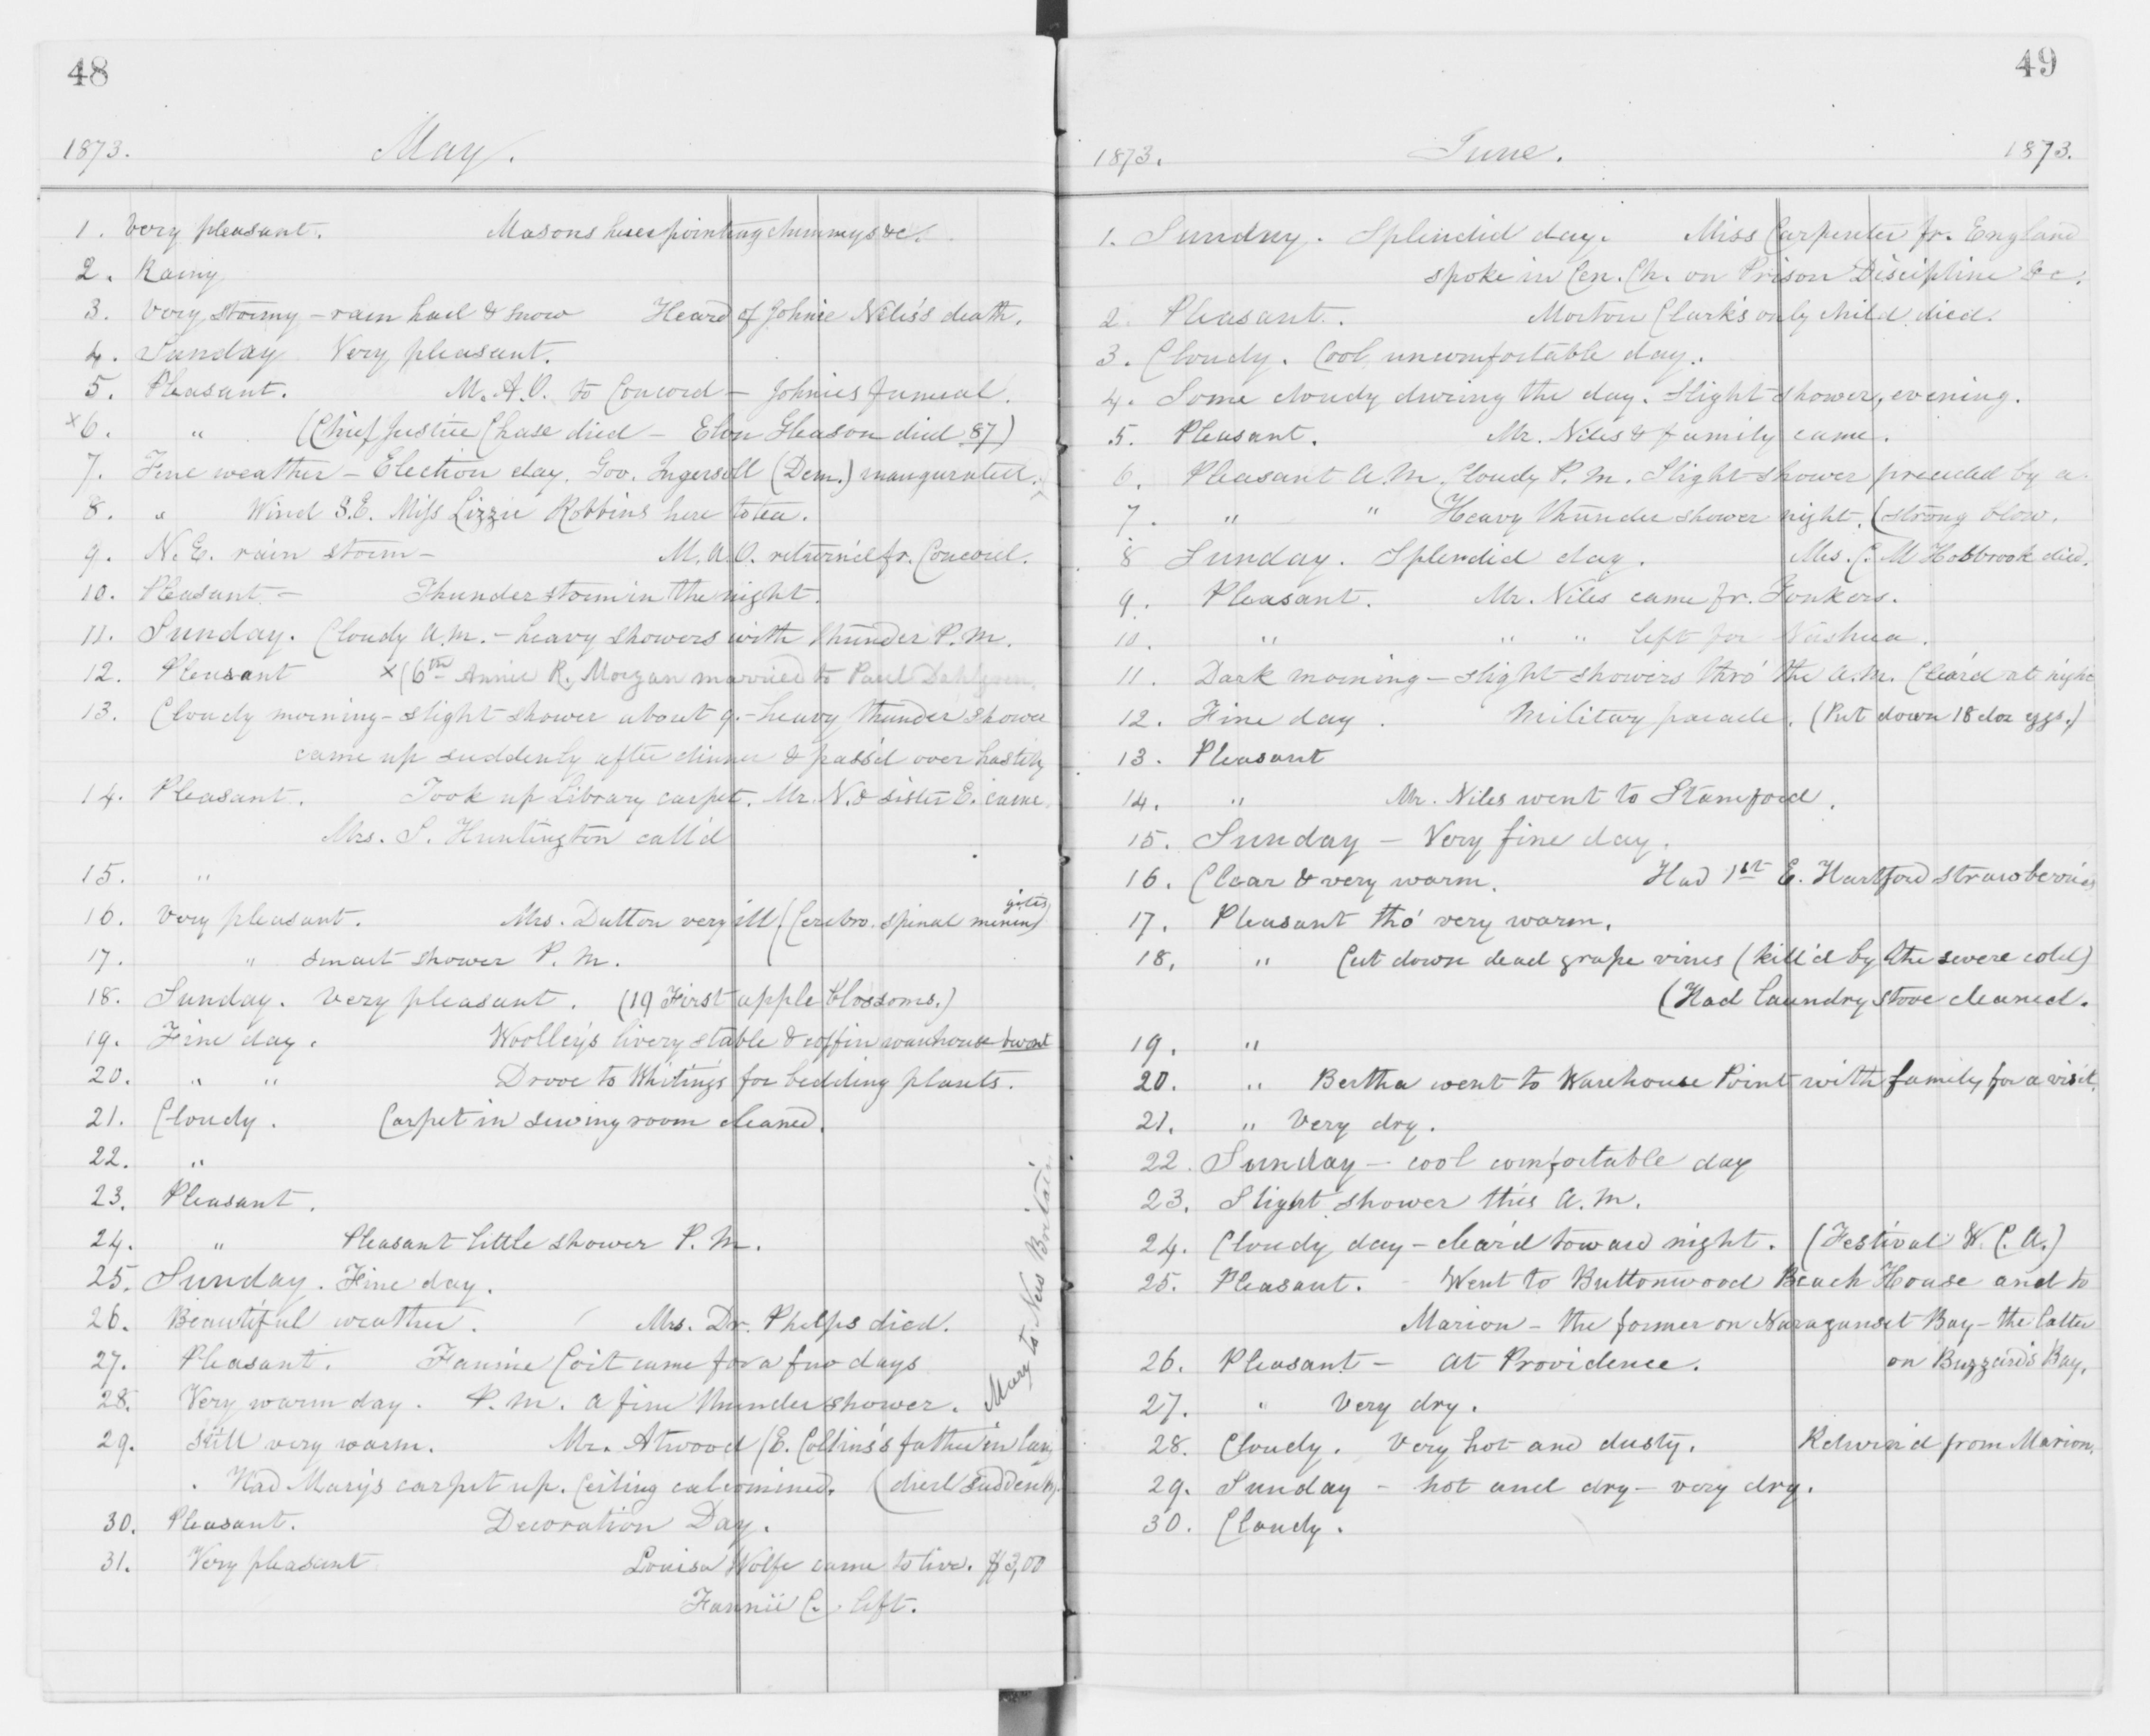 48
1873. May.
1. Very pleasant. Masons here pointing chimneys &c.
2. Rainy
3. Very stormy – rain hail & snow Heard of Johnie Niles's death.
4. Sunday Very pleasant.
5. Pleasant. M.A.O. to Concord – Johnies funeral.
×6. " (Chief Justice Chase died – Elon Gleason died 87)
7. Fine weather – Election day. Gov. Ingersoll (Dem.) inaugurated.
8. " Wind S.E. Miss Lizzie Robbins here to tea.
9. N.E. rain storm – M.A.O. return'd fr. Concord.
10. Pleasant – Thunder storm in the night.
11. Sunday. Cloudy A.M. – heavy showers with thunder P.M.
12. Pleasant ×(6th Annie R. Morgan married to Paul Dahlgren.
13. Cloudy morning – slight shower about 9. – heavy thunder shower
came up suddenly after dinner & pass'd over hastily
14. Pleasant. Took up Library carpet. Mr. N. & sister E. came.
Mrs. S. Huntington call'd
15. "
16. Very pleasant. Mrs. Dutton very ill (Cerebro. spinal menin
gites)
17. " smart shower P.M.
18. Sunday. Very pleasant. (19 First apple blossoms.)
19. Fine day. Woolley's livery stable & coffin warehouse burnt
20. " " Drove to Whiting's for bedding plants.
21. Cloudy. Carpet in sewing room cleaned.
22. "
23. Pleasant.
24. " Pleasant little shower P.M.
25. Sunday. Fine day.
26. Beautiful weather. Mrs. Dr. Phelps died.
27. Pleasant. Fannie Coit came for a few days
28. Very warm day. P.M. a fine thunder shower.
Mary to New Britain
29. Still very warm. Mr. Atwood (E. Collins's father in law)
Had Mary's carpet up. Ceiling calcomined. (died suddenly.
30. Pleasant. Decoration Day.
31. Very pleasant Louisa Wolfe came to live. $3,00
Fannie C. left.
49
1873. June. 1873.
1. Sunday. Splendid day. Miss Carpenter fr. England
spoke in Cen. Ch. on Prison Discipline &c.
2. Pleasant. Morton Clark's only child died.
3. Cloudy. Cool uncomfortable day.
4. Some cloudy during the day. Slight shower, evening.
5. Pleasant. Mr. Niles & family came.
6. Pleasant A.M. Cloudy P.M. Slight shower preceded by a
7. " " Heavy thunder shower night. (strong blow.
8 Sunday. Splendid day. Mrs. C. M Holbrook died.
9. Pleasant. Mr. Niles came fr. Yonkers.
10. " " " left for Nashua.
11. Dark morning – slight showers thro' the A.M. Clear'd at night
12. Fine day. Military parade. (Put down 18 doz eggs.)
13. Pleasant
14. " Mr. Niles went to Stamford.
15. Sunday – Very fine day.
16. Clear & very warm. Had 1st E. Hartford strawberries
17. Pleasant tho' very warm.
18. " Cut down dead grape vines (kill'd by the severe cold)
(Had laundry stove cleaned.
19. "
20. " Bertha went to Warehouse Point with family for a visit.
21. " Very dry.
22. Sunday – cool comfortable day
23. Slight shower this A.M.
24. Cloudy day – clear'd toward night. (Festival W.C.A.)
25. Pleasant. Went to Buttonwood Beach House and to
Marion – the former on Naraganset Bay – the latter
26. Pleasant – At Providence. on Buzzard's Bay.
27. " Very dry.
28. Cloudy. Very hot and dusty. Return'd from Marion.
29. Sunday – hot and dry – very dry.
30. Cloudy.